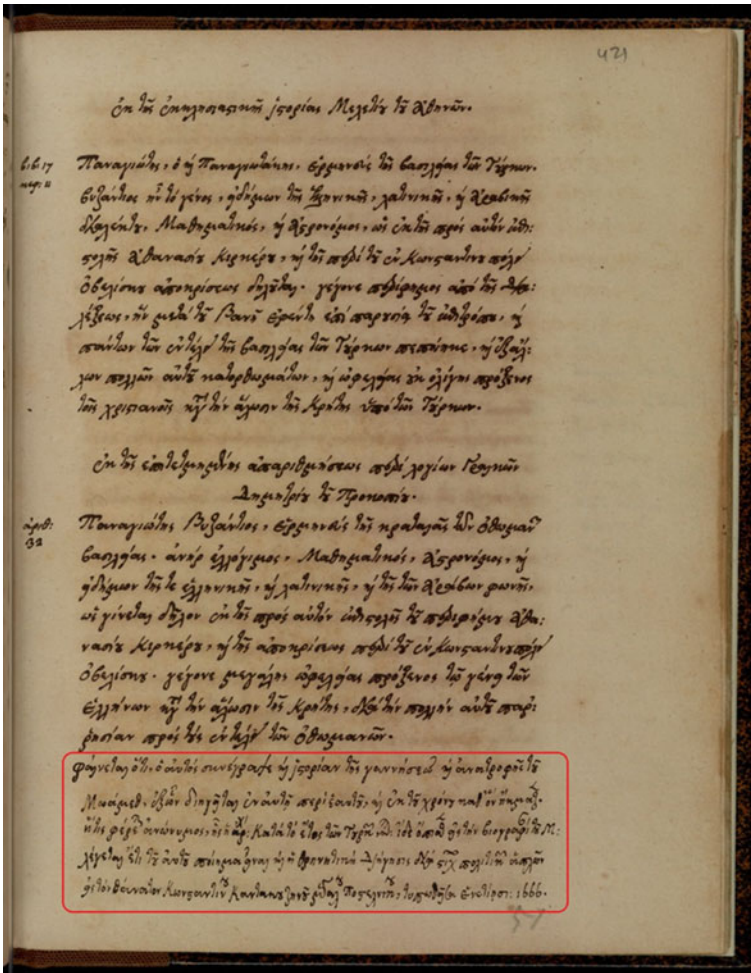 421
ἐκ τῆς ἐκκλησιαστικῆς ἱστορίας Μελετίου τοῦ Ἀθηνῶν.
βιβ. 17
κεφ. 11
Παναγιώτης, ὁ καὶ Παναγιωτάκης, ἑρμηνεὺς τῆς βασιλείας τῶν Τούρκων.
βυζάντιος ἦν τὸ γένος, εἰδήμων τῆς ἑλληνικῆς, λατινικῆς, καὶ ἀραβικῆς
διαλέκτου, Μαθηματικός, καὶ ἀστρονόμος, ὡς ἐκ τῆς πρὸς αὐτὸν ἐπι:
στολῆς Ἀθανασίου Κιρκέρου, καὶ τῆς περὶ τοῦ ἐν Κωνσταντινουπόλει
ὀβελίσκου ἀποκρίσεως δηλοῦται. γέγονε περίφημος ἀπὸ τῆς διαλ:
λέξεως, ἣν μετὰ τοῦ Βανῆ ἐφέντη ἐπὶ παρουσίᾳ τοῦ ἐπιτρόπου, καὶ
πάντων τῶν ἐν τέλει τῆς βασιλείας τῶν Τούρκων πεποίηκε, καὶ ἐξ ἄλ:
λων πολλῶν αὐτοῦ κατορθωμάτων, καὶ ὠφελείας οὐκ ὀλίγης πρόξενος
τοῖς χριστιανοῖς κατὰ τὴν ἅλωσιν τῆς Κρήτης ὑπὸ τῶν Τούρκων.
ἐκ τῆς ἐπιτετμημένης ἀπαριθμήσεως περὶ λογίων Γραικῶν
Δημητρίου τοῦ Προκοπίου.
ἀριθ:
32
Παναγιώτης Βυζάντιος, ἑρμηνεὺς τῆς κραταιᾶς τῶν Ὀθωμανῶν
βασιλείας. ἀνὴρ ἐλλόγιμος, Μαθηματικός, ἀστρονόμος, καὶ
εἰδήμων τῆς τε ἑλληνικῆς, καὶ λατινικῆς, καὶ τῆς τῶν ἀράβων φωνῆς,
ὡς γίνεται δῆλον ἐκ τῆς πρὸς αὐτὸν ἐπιστολῆς τοῦ περιφήμου Ἀθα:
νασίου Κιρκέρου, καὶ τῆς ἀποκρίσεως περὶ τοῦ ἐν Κωνσταντινουπόλει
ὀβελίσκου. γέγονε μεγάλης ὠφελείας πρόξενος τῷ γένει τῶν
Ἑλλήνων κατὰ τὴν ἅλωσιν τῆς Κρήτης, διὰ τὴν πολλὴν αὐτοῦ παρ:
ρησίαν πρὸς τοὺς ἐν τέλει τῶν Ὀθωμανῶν.
φαίνεται ὅτι ὁ αὐτὸς συνέγραψε καὶ ἱστορίαν τῆς γεννήσεως καὶ ἀνατροφῆς τοῦ
Μωάμεθ, ἐξ ὧν διηγεῖται ἐν αὐτῇ περὶ ἑαυτοῦ, καὶ ἐκ τοῦ χρόνου καθ' ὃν ἤκμαζ.
ἥτις φέρεται ἀνώνυμος, Κατὰ τὸ ἔτος τῶν τὴν βιογραφ. τοῦ Μ:
λέγεται ἔτι τοῦ αὐτοῦ ποίημα εἶναι καὶ ἡ θρηνητικὴ διήγησις διὰ στίχ. πολιτικῶν ἁπλῶν
εἰς τὸν θάνατον Κωνσταντίνου Καντακουζηνοῦ τυπωθεῖσα Ἐνετίησι: 1666.